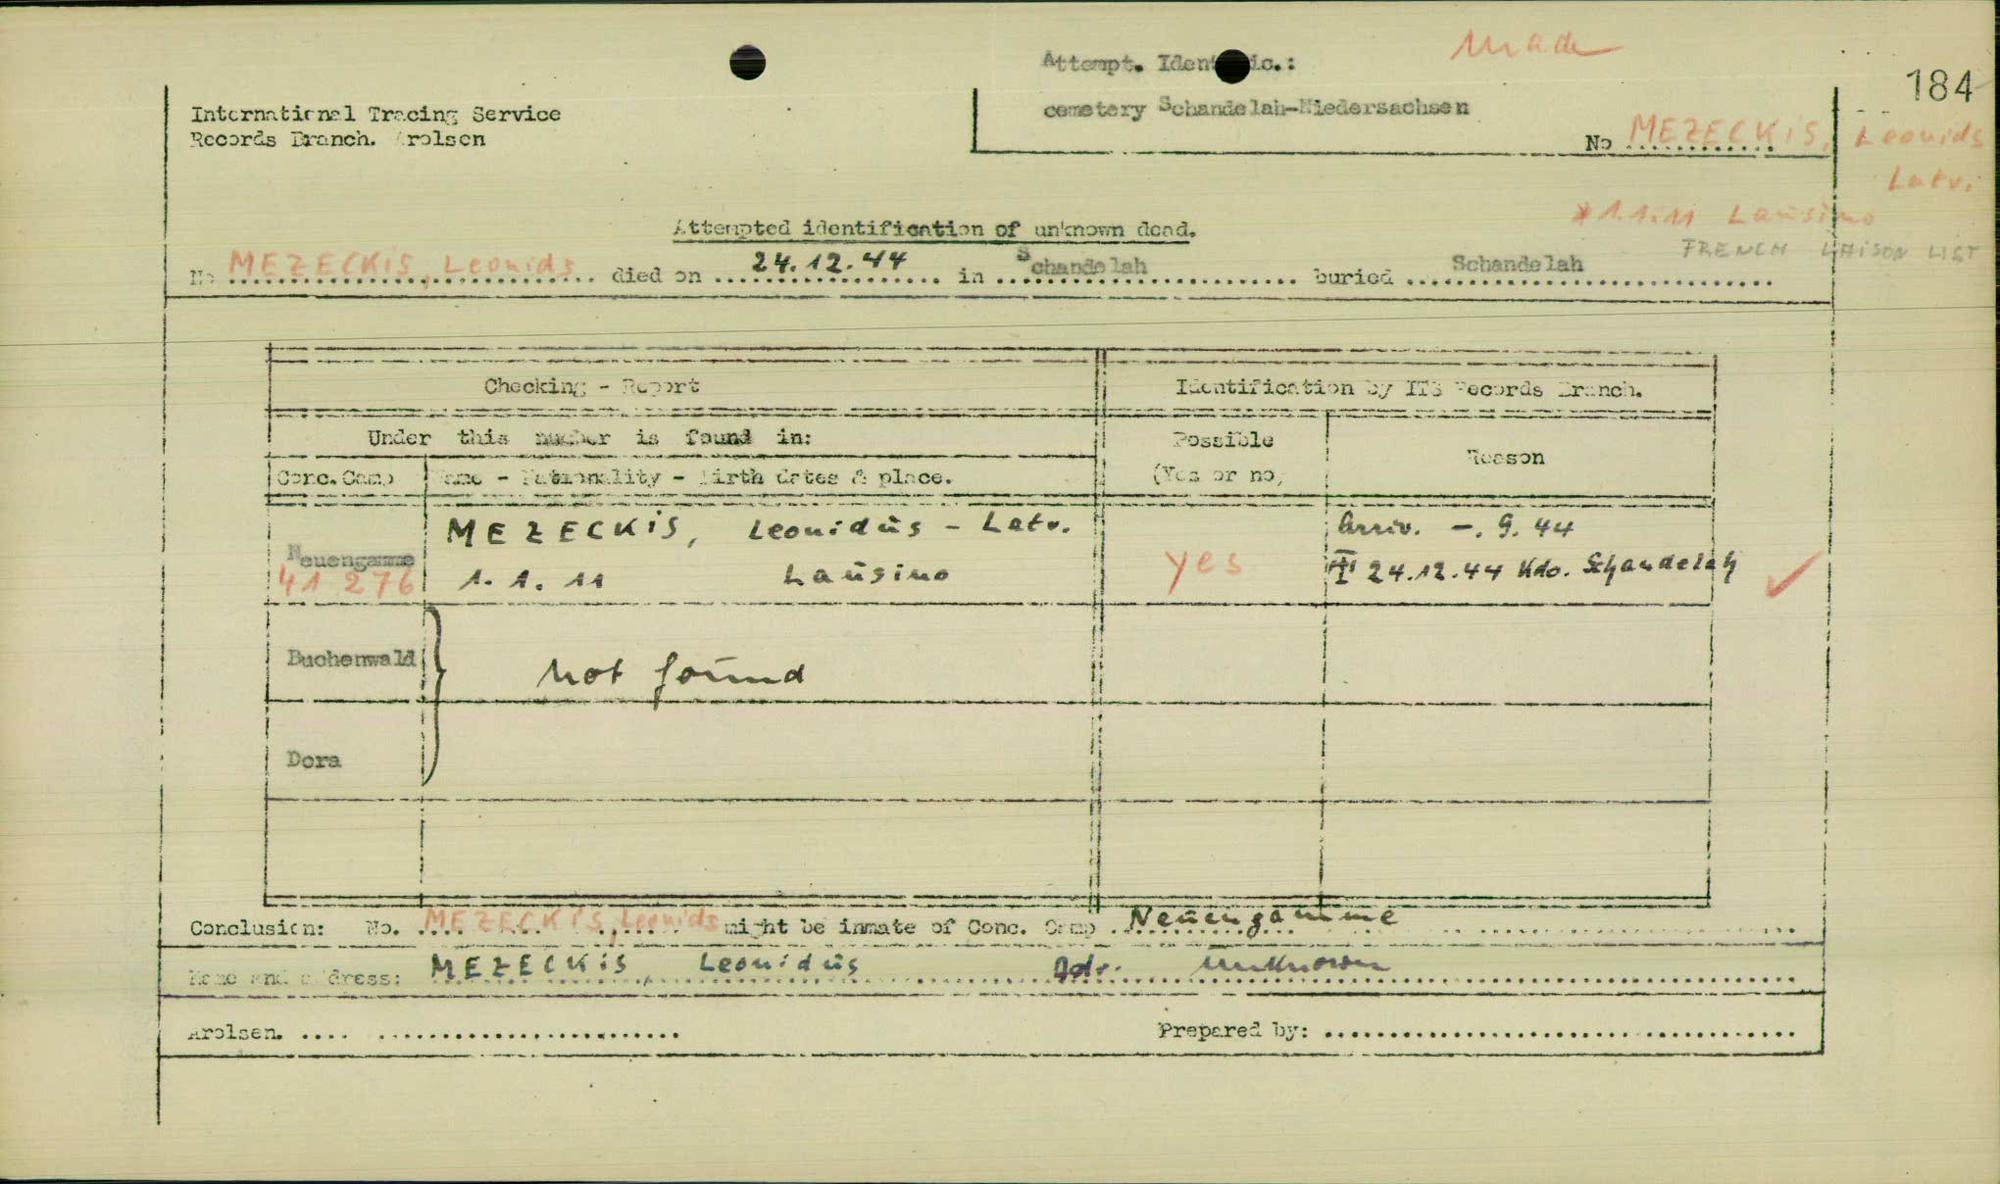 184
Attempt. Identific.: made
cemetery Schandelah-Niedersachsen
International Tracing Service
Records Branch. Arolsen
No MEZECKIS, Leonids
Latv.
*1.1.11 Lausino
FRENCH LIAISON LIST
Attempted identification of unknown dead.
No MEZECKIS, Leonids died on 24.12.44 in Schandelah buried Schandelah
Checking - Report Identification by ITS Records Branch.
Under this number is found in: Possible Reason
Conc.Camp Name - Nationality - Birth dates & place. (Yes or no)
Neuengamme MEZECKIS, Leonidus - Latv. Arriv. -. 9. 44
41 276 1. 1. 11 Lausino yes 24.12.44 Kdo. Schandelah
Buchenwald not found
Dora
Conclusion: No. MEZECKIS, Leonids might be inmate of Conc. Camp Neuengamme
Name and address: MEZECKIS, Leonidus Adr. unknown
Arolsen. Prepared by: